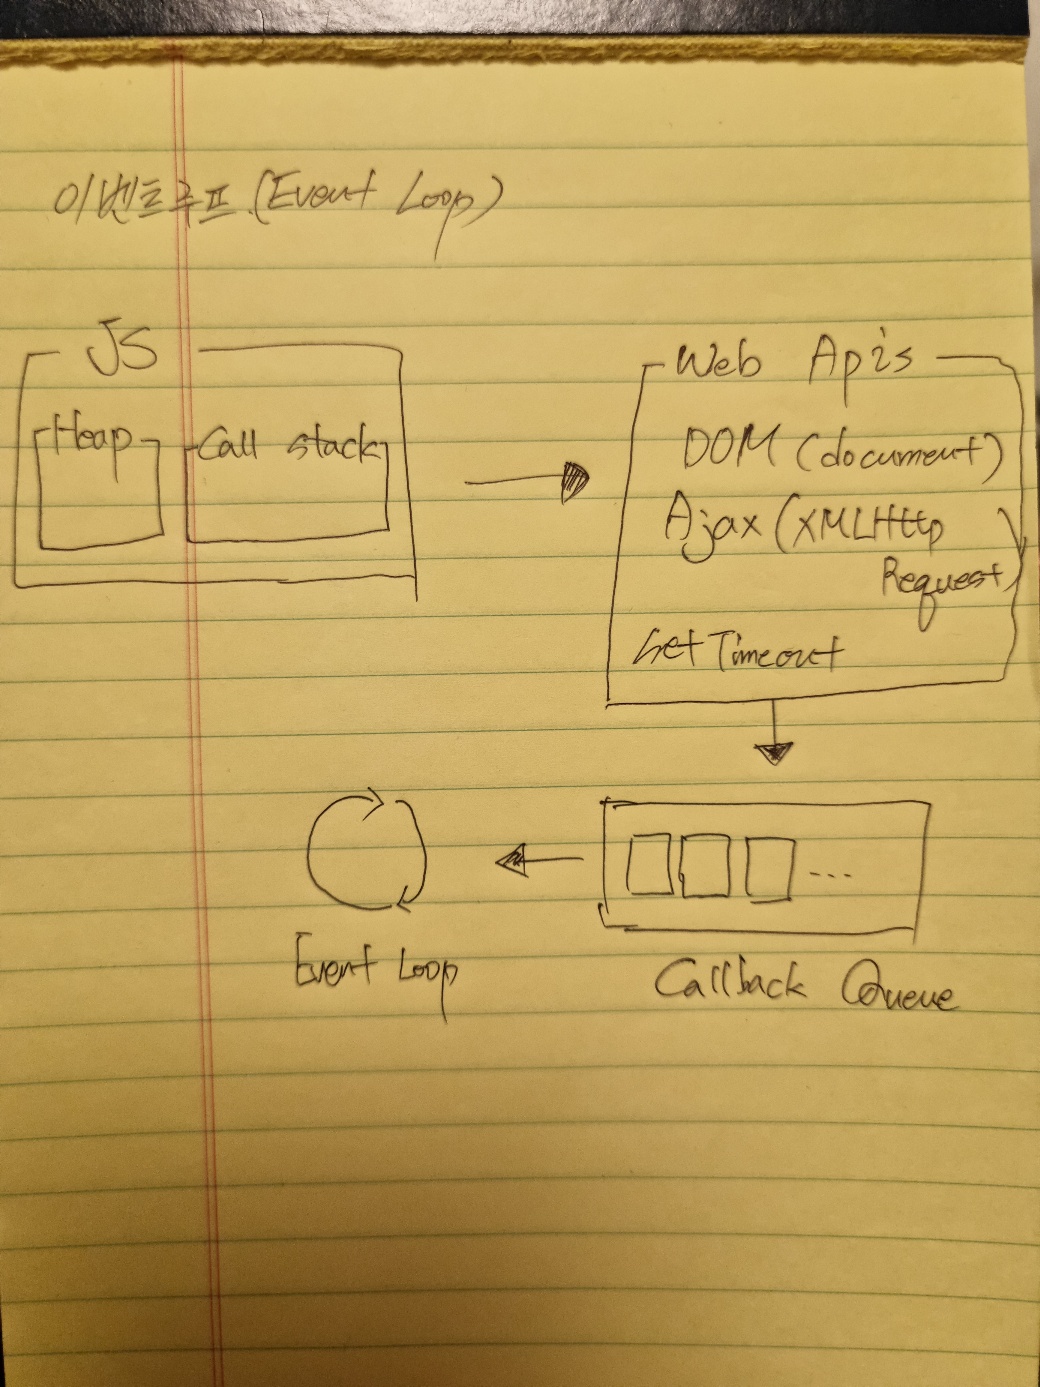 이벤트루프 (Event Loop)
JS
Heap
Call stack
Web Apis
DOM (document)
Ajax (XMLHttp
Request)
SetTimeout
Event Loop
Callback Queue